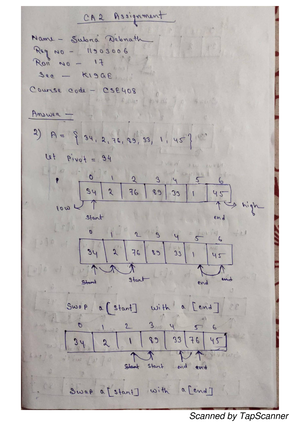 CA2 Assignment
Name - Subno Debnath
Reg No - 11903006
Roll No - 17
Sec - K19GE
Course Code - CSE408
Answer -
2) A = { 34, 2, 76, 89, 33, 1, 45 }
let pivot = 34
0 1 2 3 4 5 6
34 2 76 89 33 1 45
low start end high
0 1 2 3 4 5 6
34 2 76 89 33 1 45
start start end end
Swap a[start] with a[end]
0 1 2 3 4 5 6
34 2 1 89 33 76 45
start start end end
Swap a[start] with a[end]
Scanned by TapScanner